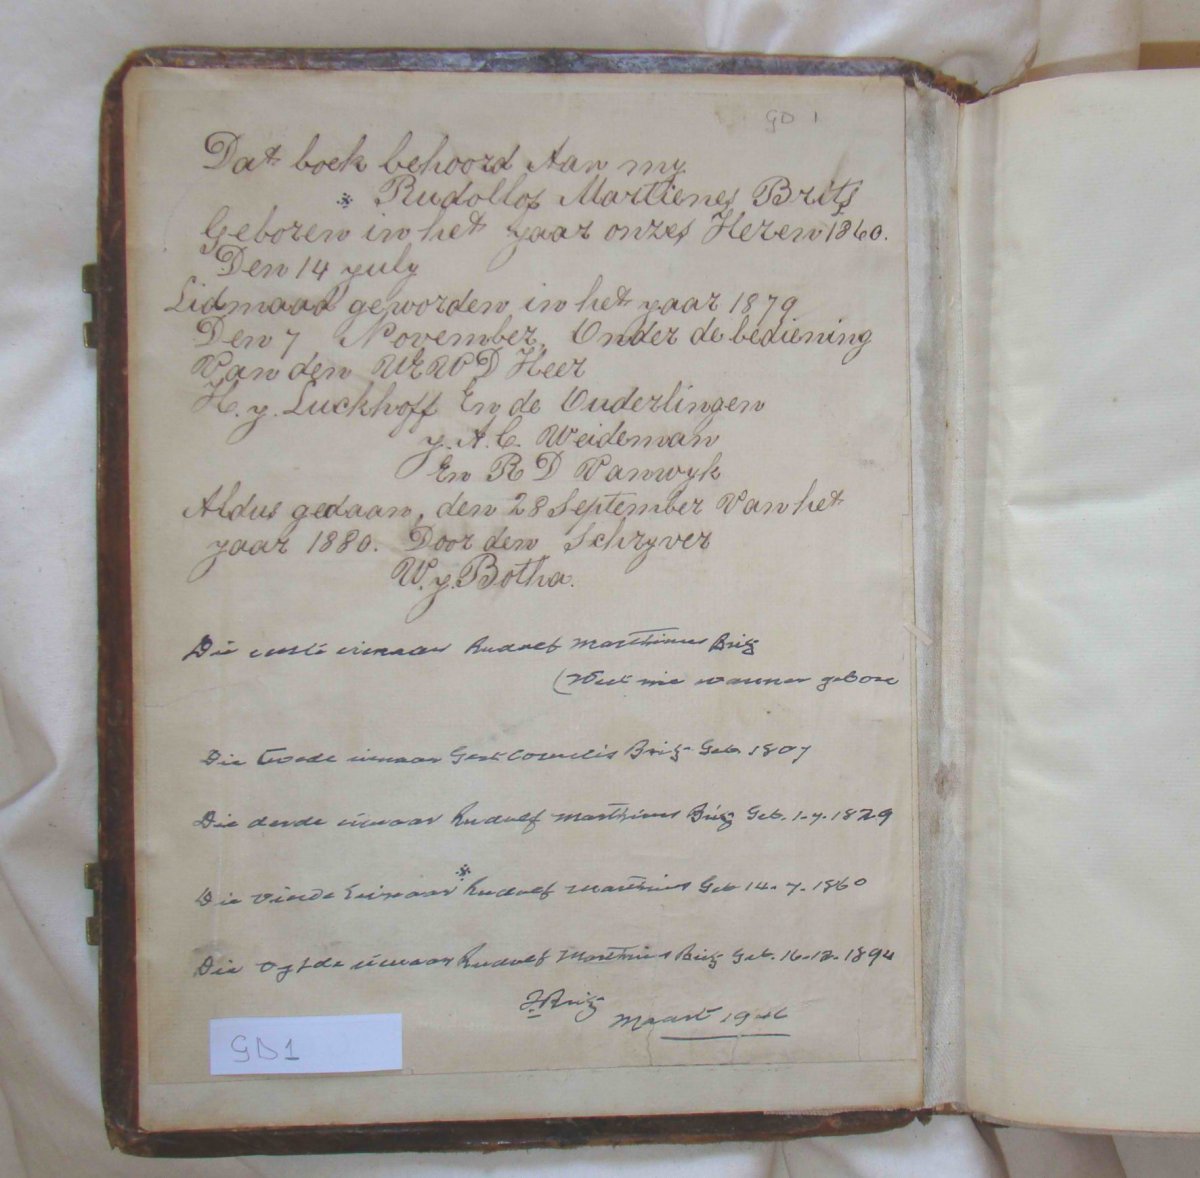 GD 1
Dat boek behoord Aan my
Rudollof Martienes Brits
Geboren in het yaar onzes Heren 1860.
Den 14 yuly
Lidmaad geworden in het yaar 1879
Den 7 November, Onder de bediening
Van den WEWD Heer
H. y. Luckhoff En de Ouderlingen
y. A. C. Weideman
En R D Vanwyk
Aldus gedaan, den 28 September Van het
yaar 1880. Door den Schryver
W. y. Botha.
Die eerste eienaar Rudolf Marthinus Britz
(Weet nie wanneer gebore
Die twede eienaar Gert Cornelis Britz Geb. 1807
Die derde eienaar Rudolf Marthinus Britz Geb. 1.7.1829
Die vierde Eienaar Rudolf Marthinus Geb 14.7.1860
Die eienaar Rudolf Marthinus Britz Geb. 16.12.1894
Britz
Maart
GD1